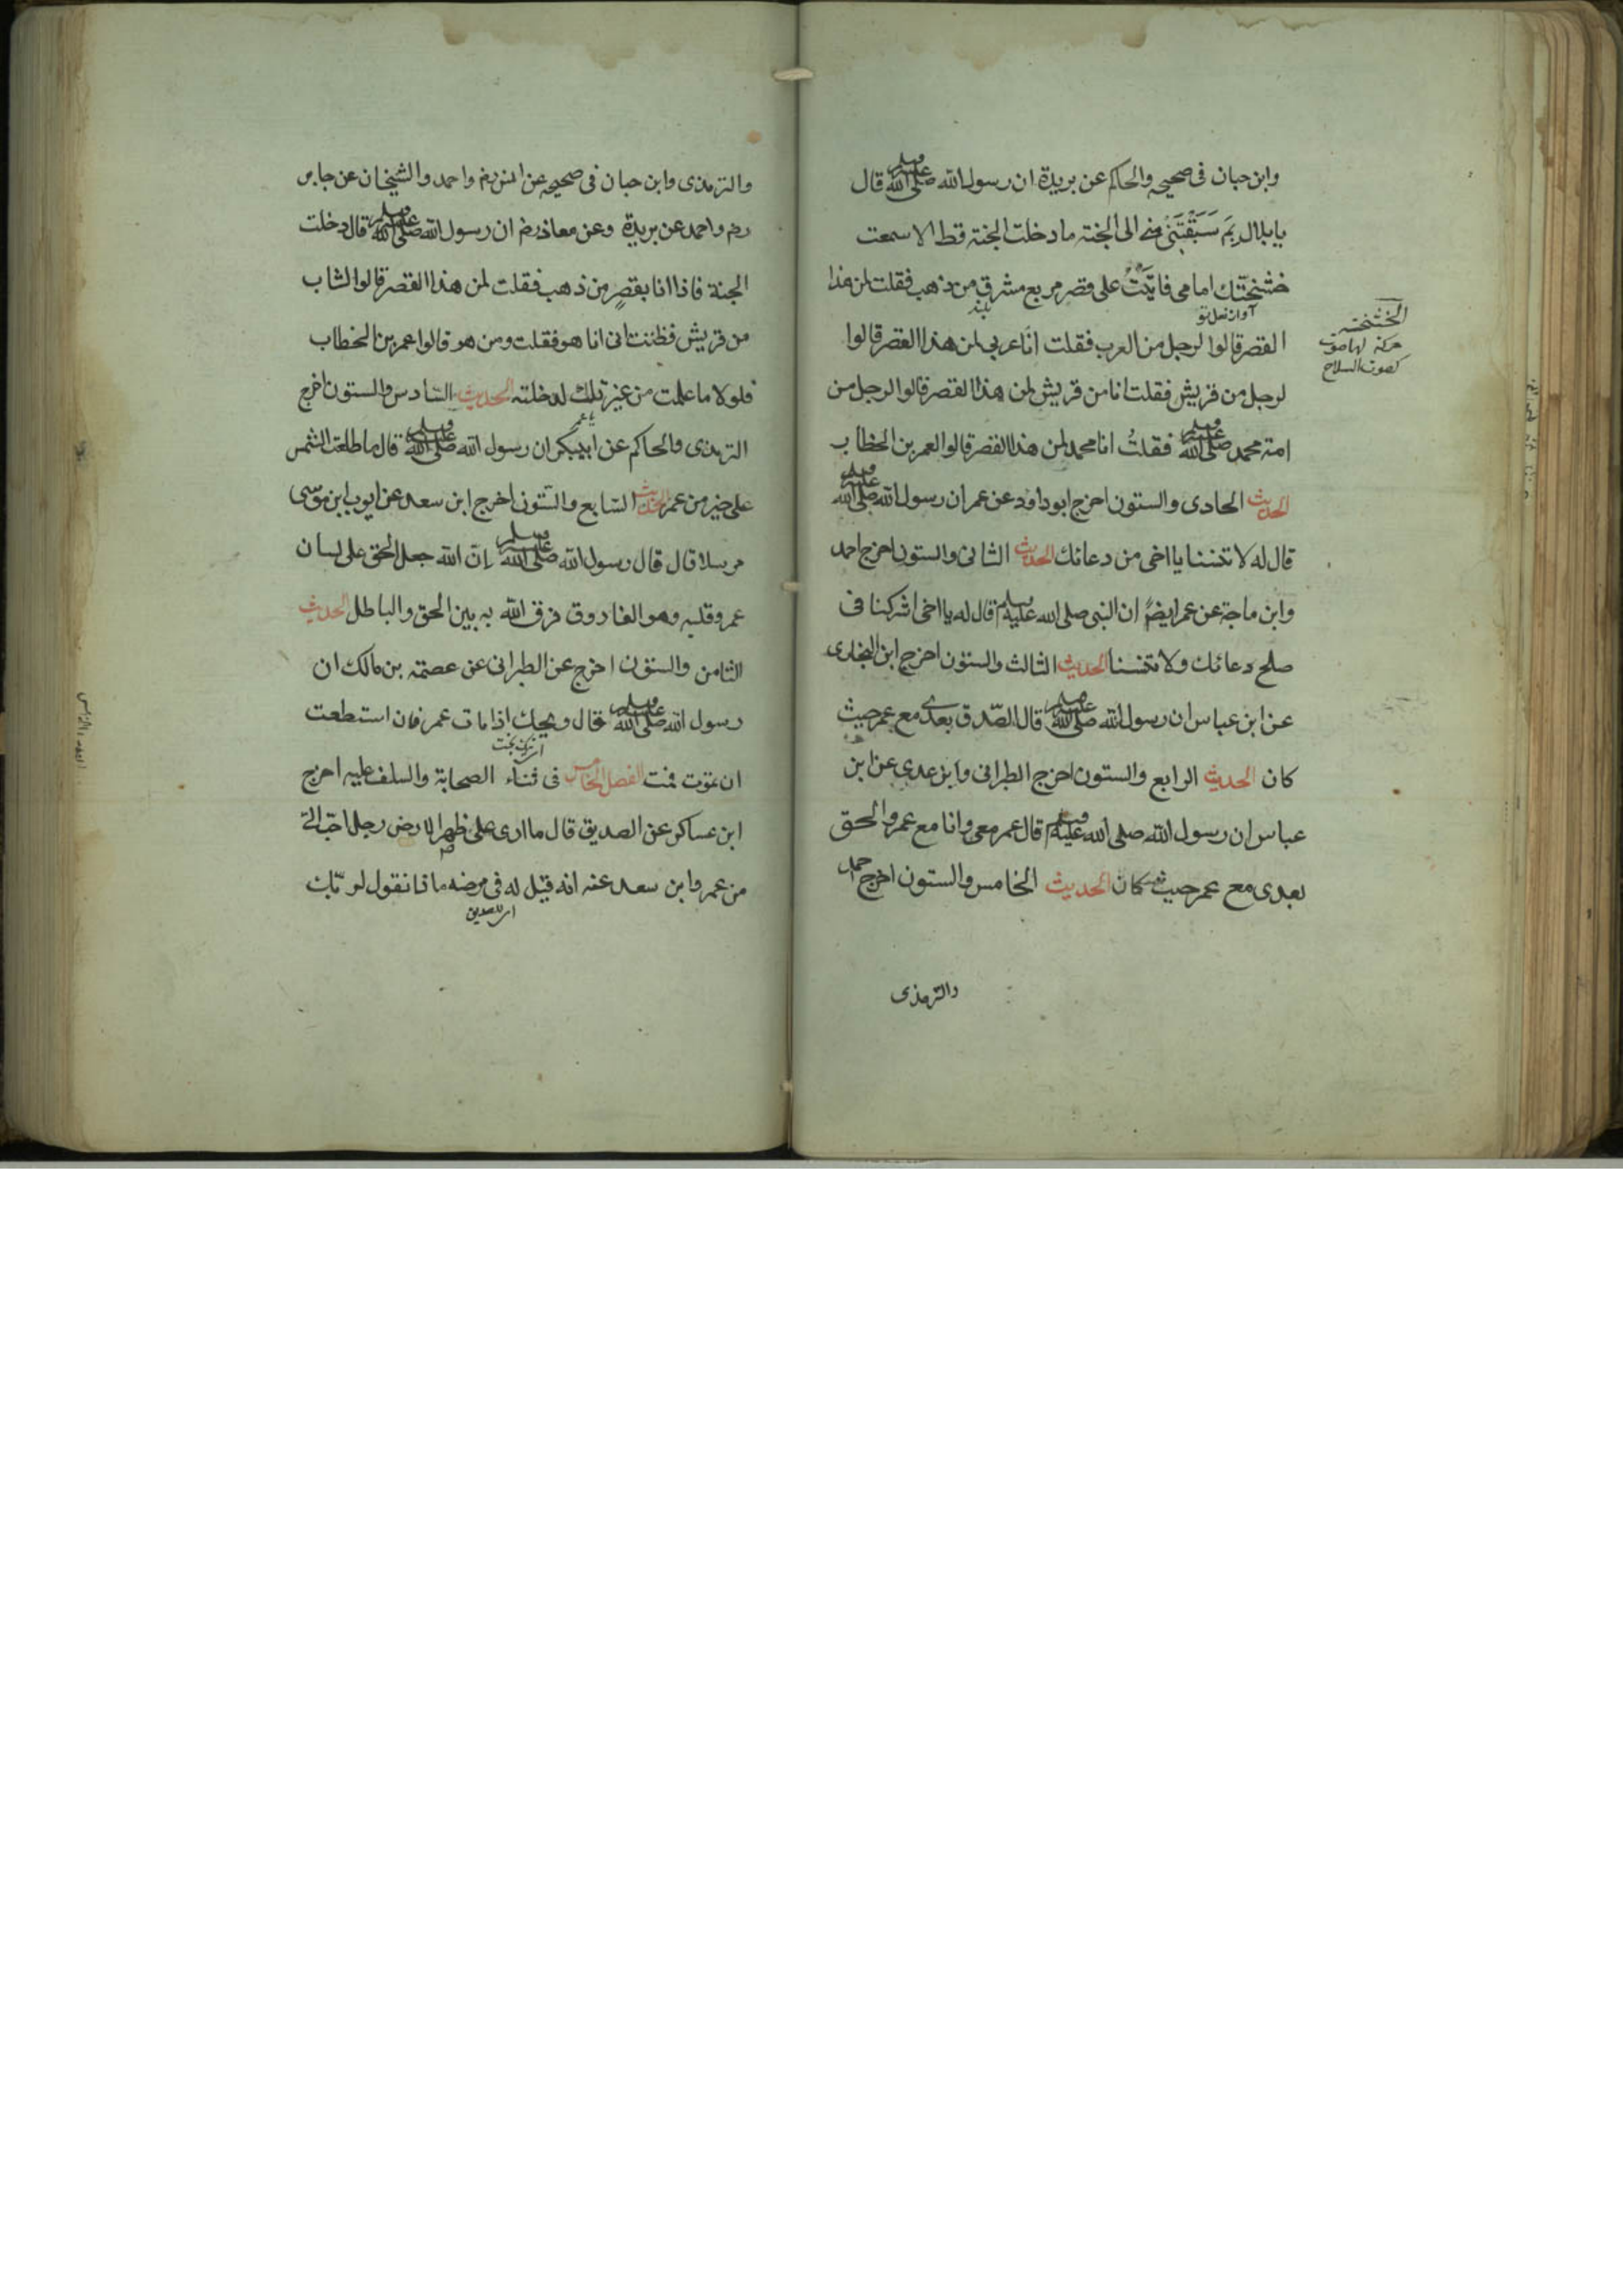 وابن حبان فى صحيحه والحاكم عن بريدة ان رسول الله صلى الله عليه وسلم قال
يابلال بِمَ سَبَقْتَنى الى الجنة ما دخلت الجنة قط الا سمعت
خشخشتك امامى فاتيت على قصر مربع مشرق من ذهب فقلت لمن هذا
آواز نعل تو
بلند
القصر قالوا لرجل من العرب فقلت انا عربى لمن هذا القصر قالوا
الخشخشة
حركة لها صوت
كصوت السلاح
لرجل من قريش فقلت انا من قريش لمن هذا القصر قالوا لرجل من
امة محمد صلى الله عليه وسلم فقلتُ انا محمد لمن هذا القصر قالوا لعمر بن الخطاب
الحديث الحادى والستون اخرج ابوداود عن عمر ان رسول الله صلى الله عليه وسلم
قال له لا تنسنا يا اخى من دعائك الحديث الثانى والستون اخرج احمد
وابن ماجة عن عمر ايضً ان النبى صلى الله عليه وسلم قال له يا اخى اشركنا فى
صلح دعائك ولا تنسنا الحديث الثالث والستون اخرج ابن النجارى
عن ابن عباس ان رسول الله صلى الله عليه وسلم قال الصّدق بعدى مع عمر حيث
كان الحديث الرابع والستون اخرج الطبرانى وابن عدى عن ابن
عباس ان رسول الله صلى الله عليه وسلم قال عمر معى وانا مع عمر والحق
بعدى مع عمر حيث كان الحديث الخامس والستون اخرج احمد
والترمذى
والترمذى وابن حبان فى صحيحه عن انس رضم واحمد والشيخان عن جابر
رضم واحمد عن بريدة وعن معاذ رضم ان رسول الله صلى الله عليه وسلم قال دخلت
الجنة فاذا انا بقصرٍ من ذهب فقلت لمن هذا القصر قالوا لشاب
من قريش فظننت انى انا هو فقلت ومن هو قالوا عمر بن الخطاب
فلولا ما علمت من غيرتك لدخلته الحديث السّادس والستون اخرج
يا عمر
الترمذى والحاكم عن ابى بكر ان رسول الله صلى الله عليه وسلم قال ما طلعت الشمس
على خير من عمر الحديث السّابع والسّتون اخرج ابن سعد عن ايوب ابن موسى
مرسلا قال قال رسول الله صلى الله عليه وسلم إنّ الله جعل الحق على لسان
عمر وقلبه وهو الفاروق فرق الله به بين الحق والباطل الحديث
الثامن والستون اخرج عن الطبرانى عن عصمة بن مالك ان
رسول الله صلى الله عليه وسلم قال ويحك اذا مات عمر فان استطعت
ان تموت فمت الفصل الخامس فى ثناء الصحابة والسلف عليه اخرج
ابن عساكر عن الصديق قال ما ارى على ظهر الارض رجل احبّ الىّ
من عمر وابن سعد عنه انه قيل له فى مرضه ماذا نقول لربّك